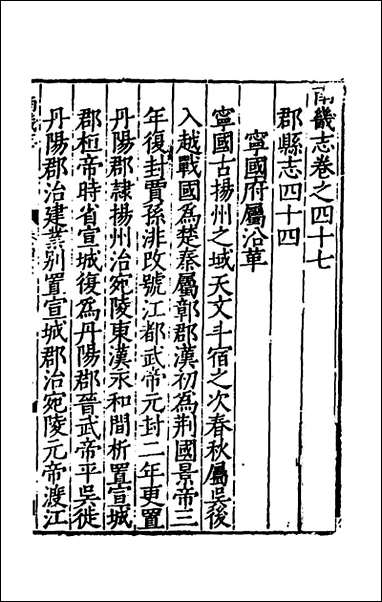 南畿志卷之四十七
郡縣志四十四
寧國府屬沿革
寧國古揚州之域天文斗宿之次春秋屬吳後
入越戰國為楚秦屬鄣郡漢初為荆國景帝三
年復封賈孫淠改號江都武帝元封二年更置
丹陽郡隸揚州治宛陵東漢永和間析置宣城
郡桓帝時省宣城復為丹陽郡晉武帝平吳徙
丹陽郡治建業别置宣城郡治宛陵元帝渡江